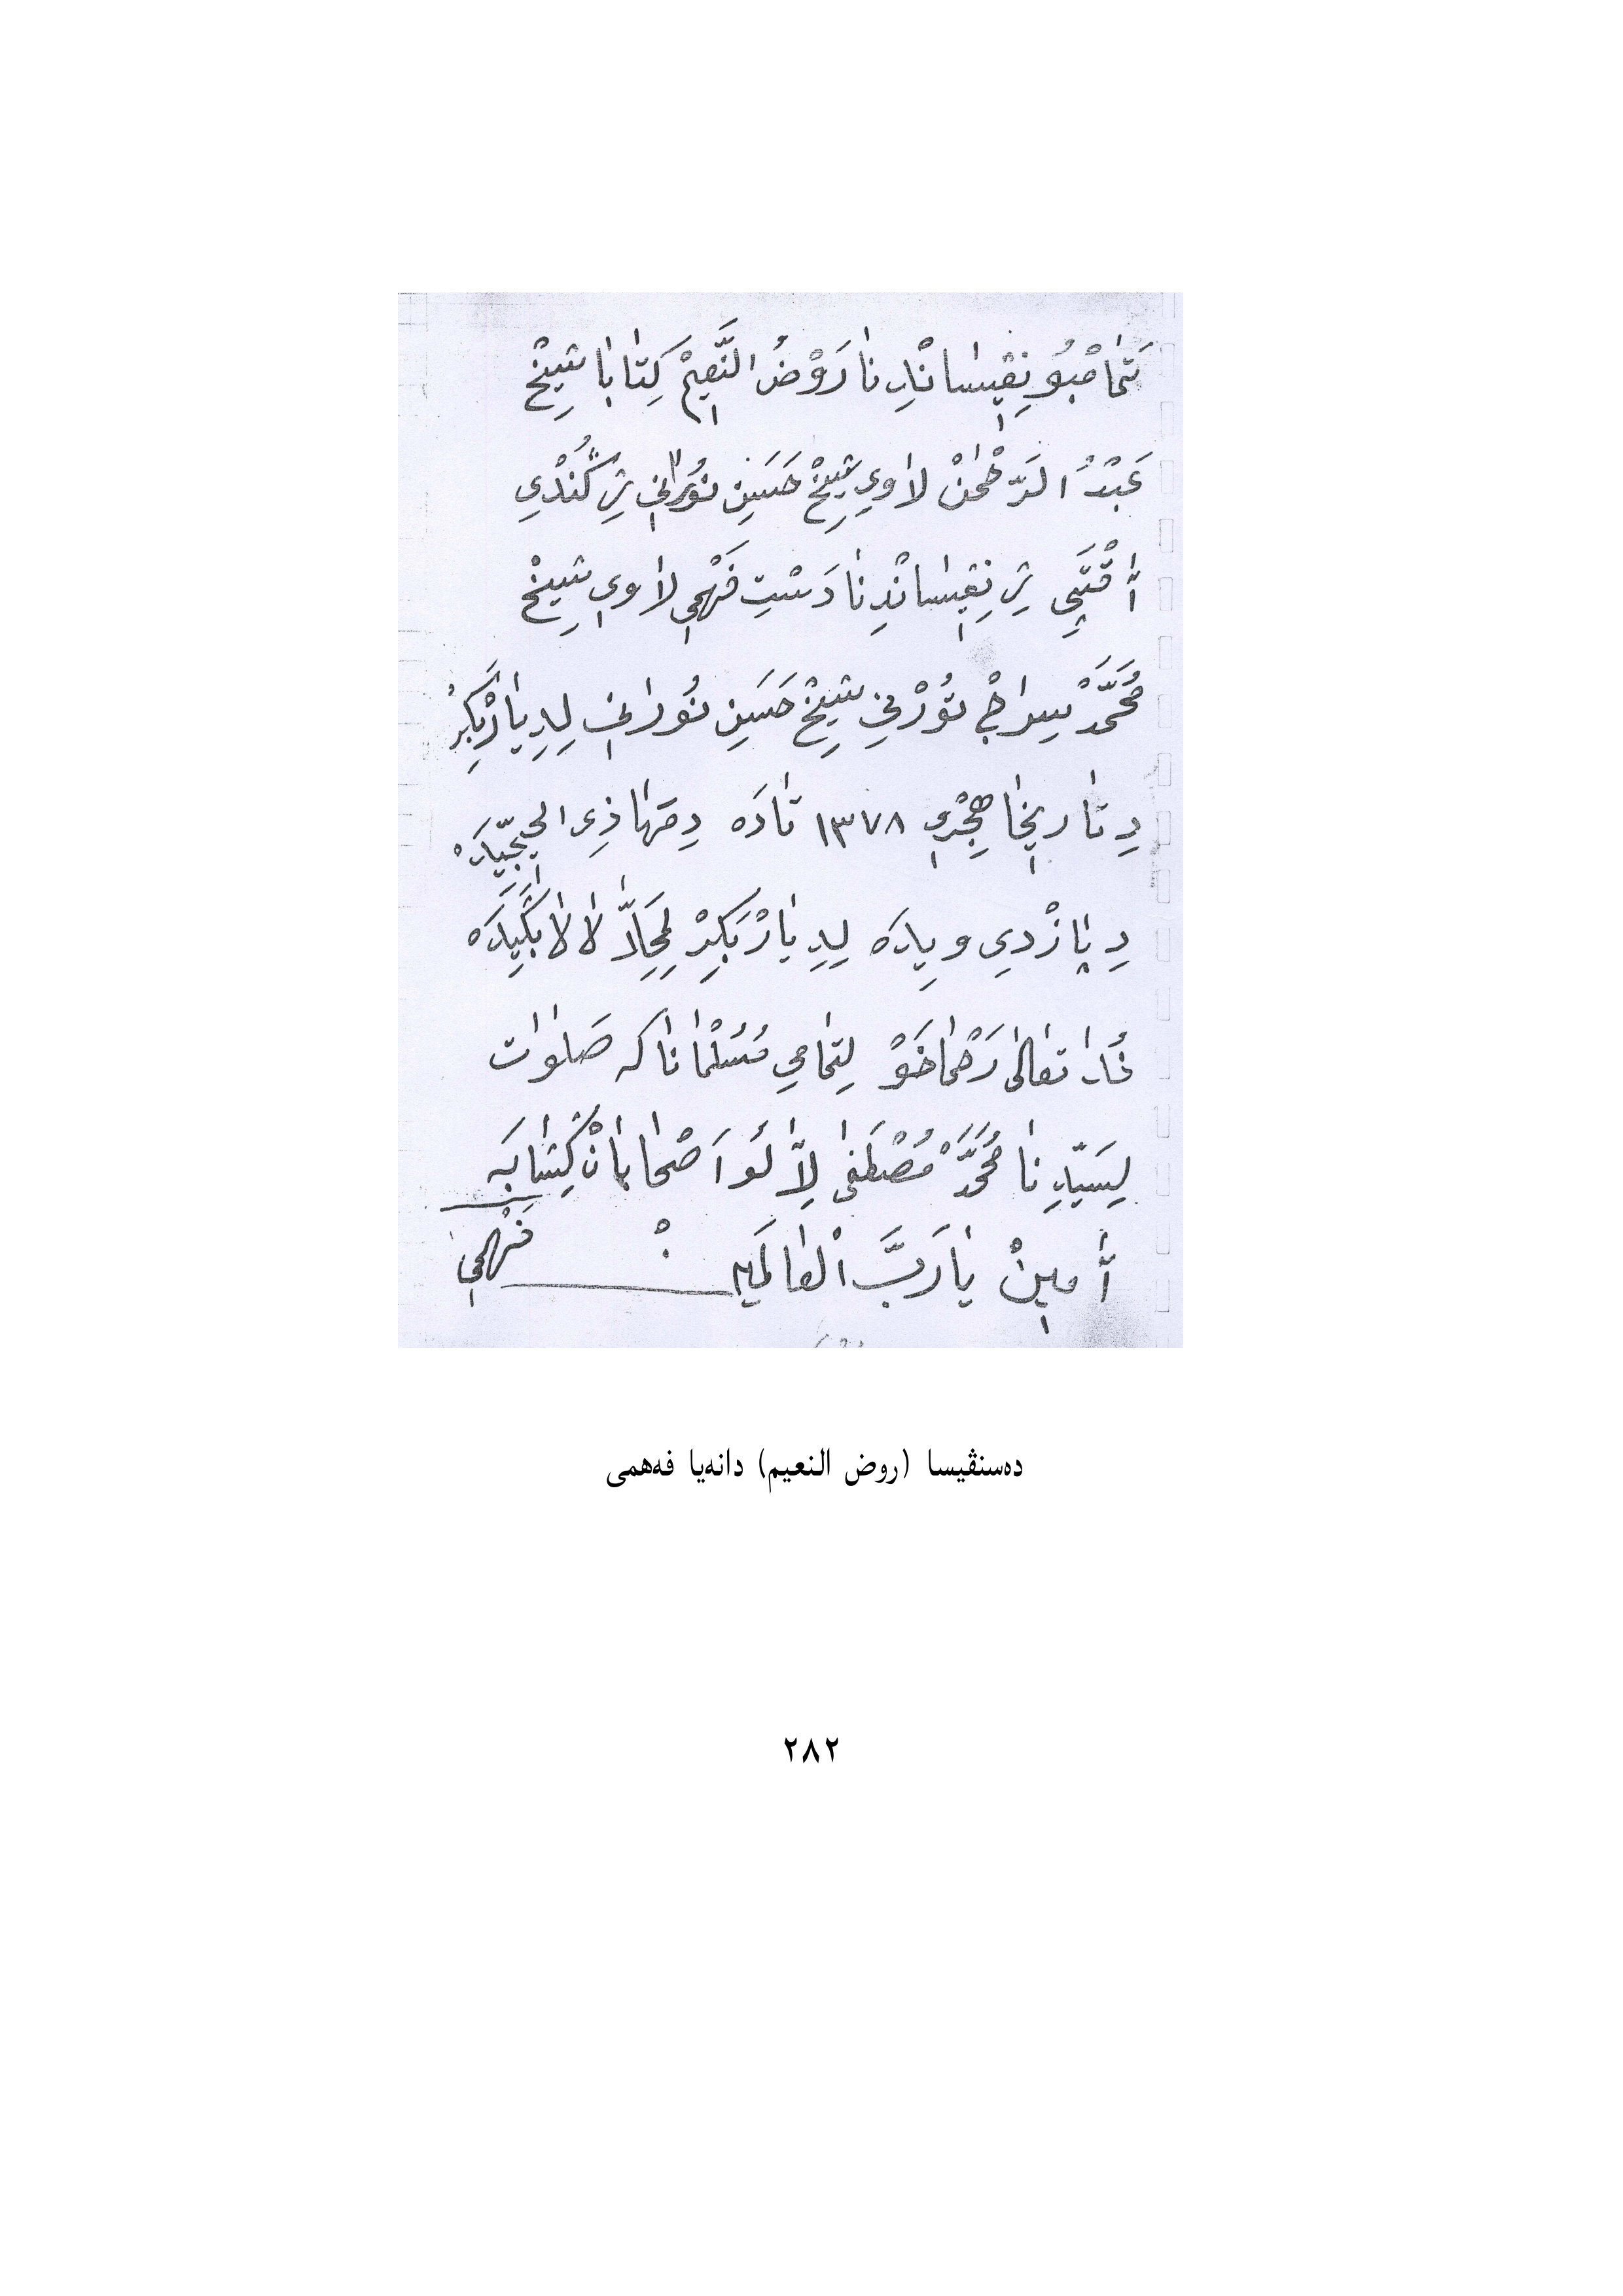 تَمٰامْبُو نِڤِیسٰانْدِنٰا رَوْضُ النَّعِیمْ کِتٰابٰا شِیخْ
عَبْدُ الرَّحْمٰنْ لٰاوِي شِیخْ حَسَینِ نُوْرٰانِي ژِ گُنْدِي
آقْتَپِی ژِ نِڤِیسٰانْدِنٰا دَسْتِ فَهْمِي لٰاوِي شِیخْ
مُحَمَّدْ سِراجِی تُوْرْنِي شِیخْ حَسَینِ نُوْرٰانِي لِدِیٰارْبَکِرْ
دِ تٰارِیخٰا هِجْرِي ١٣٧٨ تٰادَه دِمَهٰا ذِي الحِجِّیْدَه
دِ پٰازْدِي وِیدَه لِدِیٰارْبَکِرْ لِمَحَلّا لٰالٰا بَگِیدَه
خُدٰا تَعٰالیٰ رَحْمٰا خَوْ لِتَمٰامِي مُسُلْمٰانٰا کَه صَلَوٰات
لِسَیِّدِنٰا مُحَمَّدْ مُصْطَفیٰ لِآلُ وَ اَصْحٰابٰانْ گِشٰا بَه
آمِینْ یٰا رَبَّ الْعٰالَمِینْ فَهْمِي
دەسنڤیسا (روض النعیم) دانەیا فەهمی
٢٨٢